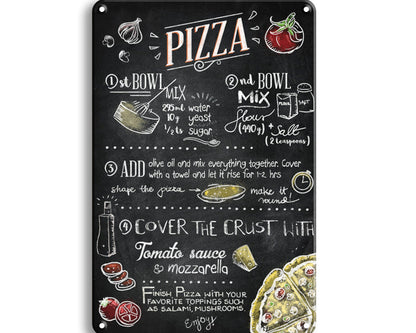 PIZZA
1st BOWL
MIX
295ml water
10g yeast
1/2 ts sugar
2nd BOWL
MIX
FLOUR SALT
flour
(490g) + Salt
(2 teaspoons)
3 ADD olive oil and mix everything together. Cover
with a towel and let it rise for 1-2 hrs
shape the pizza make it
round!
4 COVER THE CRUST WITH
Tomato sauce
& mozzarella
FINISH PIZZA WITH YOUR
FAVORITE TOPPINGS SUCH
AS SALAMI, MUSHROOMS.
Enjoy!